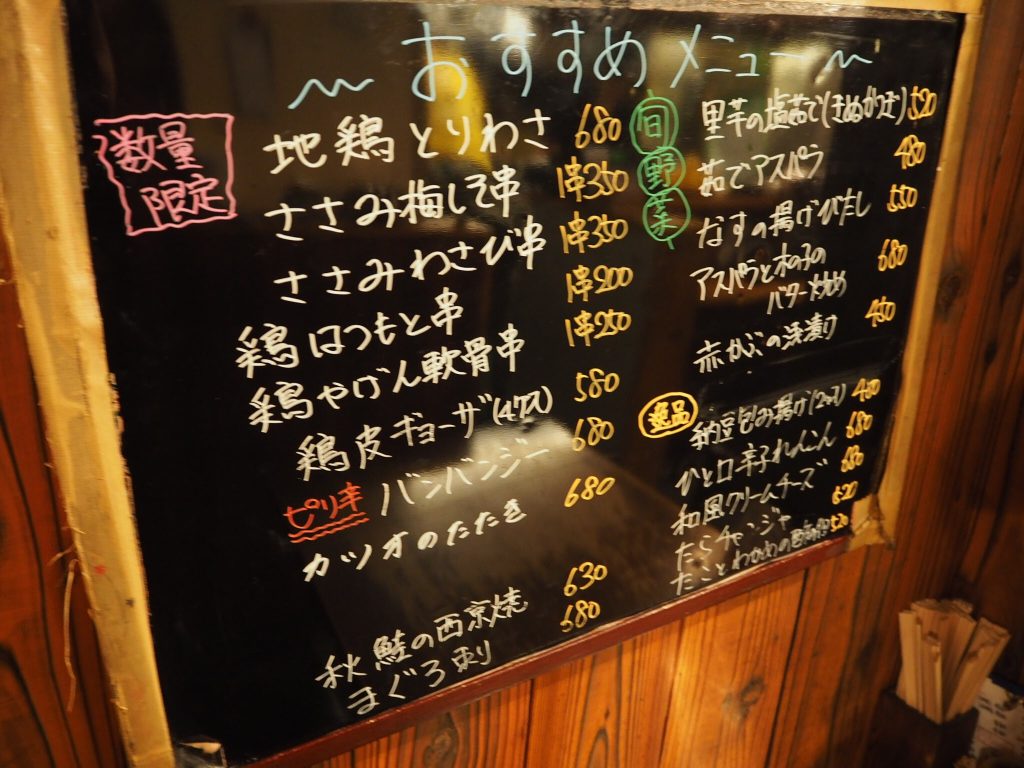 おすすめメニュー
数量
限定
地鶏とりわさ 680
ささみ梅しそ串 1串350
ささみわさび串 1串350
鶏はつもと串 1串200
鶏やげん軟骨串 1串250
鶏皮ギョーザ(4ケ入) 580
ピリ辛 バンバンジー 680
カツオのたたき 680
秋鮭の西京焼 630
まぐろ刺 680
旬野菜
里芋の塩茹で(きぬかつぎ) 520
茹でアスパラ 480
なすの揚げびたし 550
アスパラと木の子の
バター炒め 680
赤かぶの浅漬け 450
逸品
納豆包み揚げ(2コ) 450
ひと口辛子れんこん 680
和風クリームチーズ
たらチャンジャ 520
たことわかめの 520